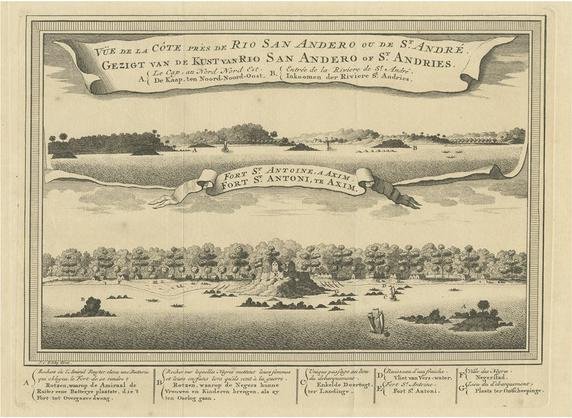 VÛE DE LA CÔTE PRÈS DE RIO SAN ANDERO OU DE ST. ANDRÉ.
GEZIGT VAN DE KUST VAN RIO SAN ANDERO OF ST. ANDRIES.
A { Le Cap, au Nord-Nord-Est.
De Kaap, ten Noord-Noord-Oost.
B. { Entrée de la Riviere de St. André.
Inkoomen der Riviere St. Andries.
A
B
FORT ST. ANTOINE, A AXIM.
FORT ST. ANTONI, TE AXIM.
A { Rocher où l'Amiral Ruyter, éleva une Batterie
qui obligea le Fort de se rendre.
Rotzen, waarop de Admiraal de
Ruiter eene Batterye plantste, die 't
Fort tot Overgaave dwong.
B { Rocher sur lequel les Négres mettent leurs femmes
et leurs enfans lors qu'ils vont à la guerre.
Rotzen, waarop de Negers hunne
Vrouwen en Kinderen brengen, als zy
ten Oorlog gaan.
C { Unique passage au lieu
du débarquement.
Enkelde Doortogt,
ter Landing.
D { Ruisseau d'eau fraiche.
Vliet van Vers-water.
E { Fort St. Antoine.
Fort St. Antoni.
F { Ville des Négres.
Negerstad.
G { Lieu du débarquement.
Plaats ter Ontscheepinge.